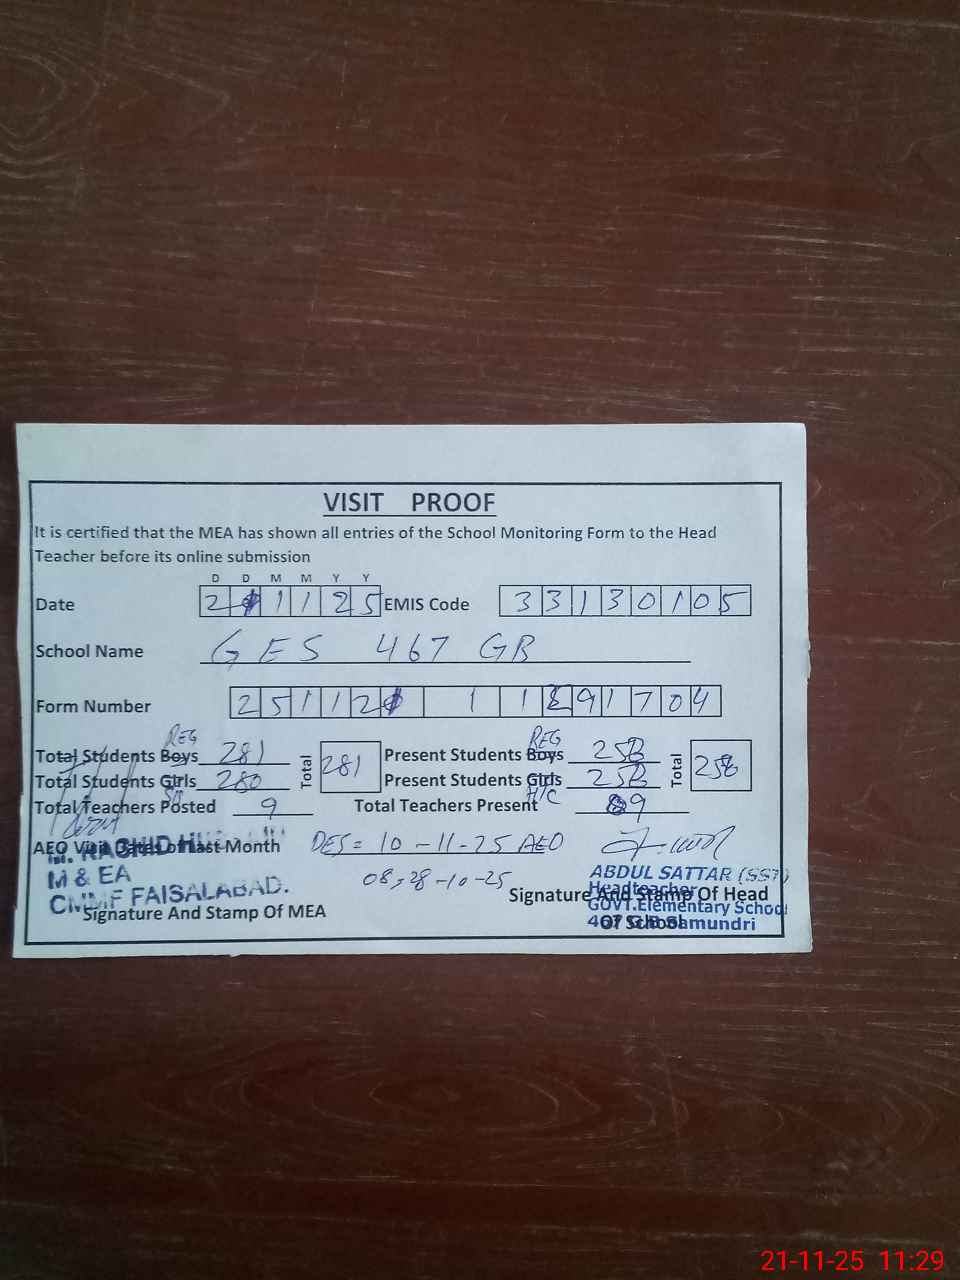 VISIT PROOF
It is certified that the MEA has shown all entries of the School Monitoring Form to the Head
Teacher before its online submission
D D M M Y Y
Date 2 1 1 1 2 5 EMIS Code 3 3 1 3 0 1 0 5
School Name GES 467 GB
Form Number 2 5 1 1 2 1 1 1 9 1 7 0 4
REG REG
Total Students Boys 281 Total 281 Present Students Boys 258 Total 258
Total Students Girls 280 Present Students Girls 258
H/C
Total Teachers Posted 9 Total Teachers Present 9
AEO Visit Dates of Last Month DES = 10-11-25 AEO
08,28-10-25
M. RASHID HUSSAIN
M & EA
CMMF FAISALABAD.
Signature And Stamp Of MEA
ABDUL SATTAR (SST)
Headteacher
Signature And Stamp Of Head
GOVT.Elementary School
467 G.B Samundri
Of School
21-11-25 11:29